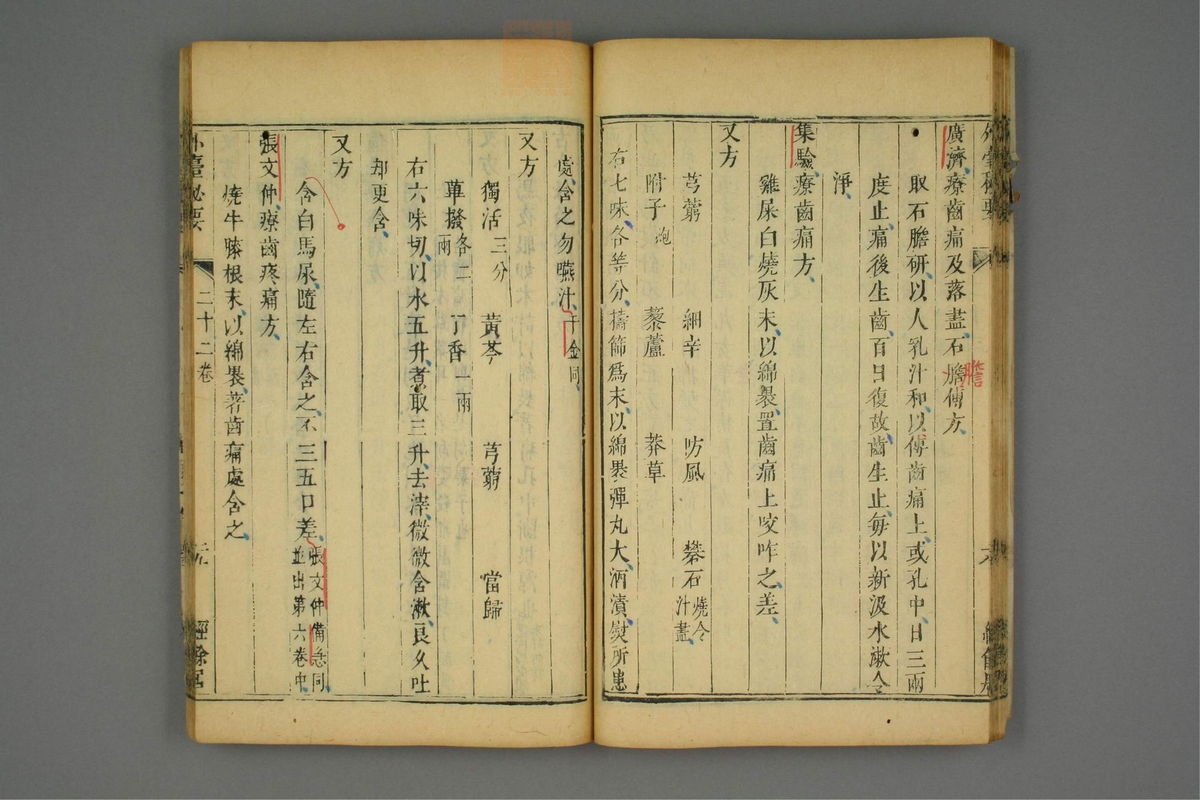 廣濟療齒痛及落盡石膽傅方
膽
取石膽研以人乳汁和以傅齒痛上或孔中日三兩
度止痛後生齒百日復故齒生止每以新汲水漱令
淨
集驗療齒痛方
雞屎白燒灰末以綿褁置齒痛上咬咋之差
又方
芎藭 細辛 防風 礬石燒令汁盡
附子炮 藜蘆 莽草
右七味各等分擣篩爲末以綿褁彈丸大酒漬熨所患
處含之勿嚥汁千金同
又方
獨活三分 黃芩 芎藭 當歸
蓽撥各二兩 丁香一兩
右六味切以水五升煮取三升去滓微微含漱良久吐
却更含
又方
含白馬尿隨左右含之不三五口差張文仲備急同並出第六卷中
張文仲療齒疼痛方
燒牛膝根末以綿褁著齒痛處含之
外臺祕要 二十二卷 經餘居